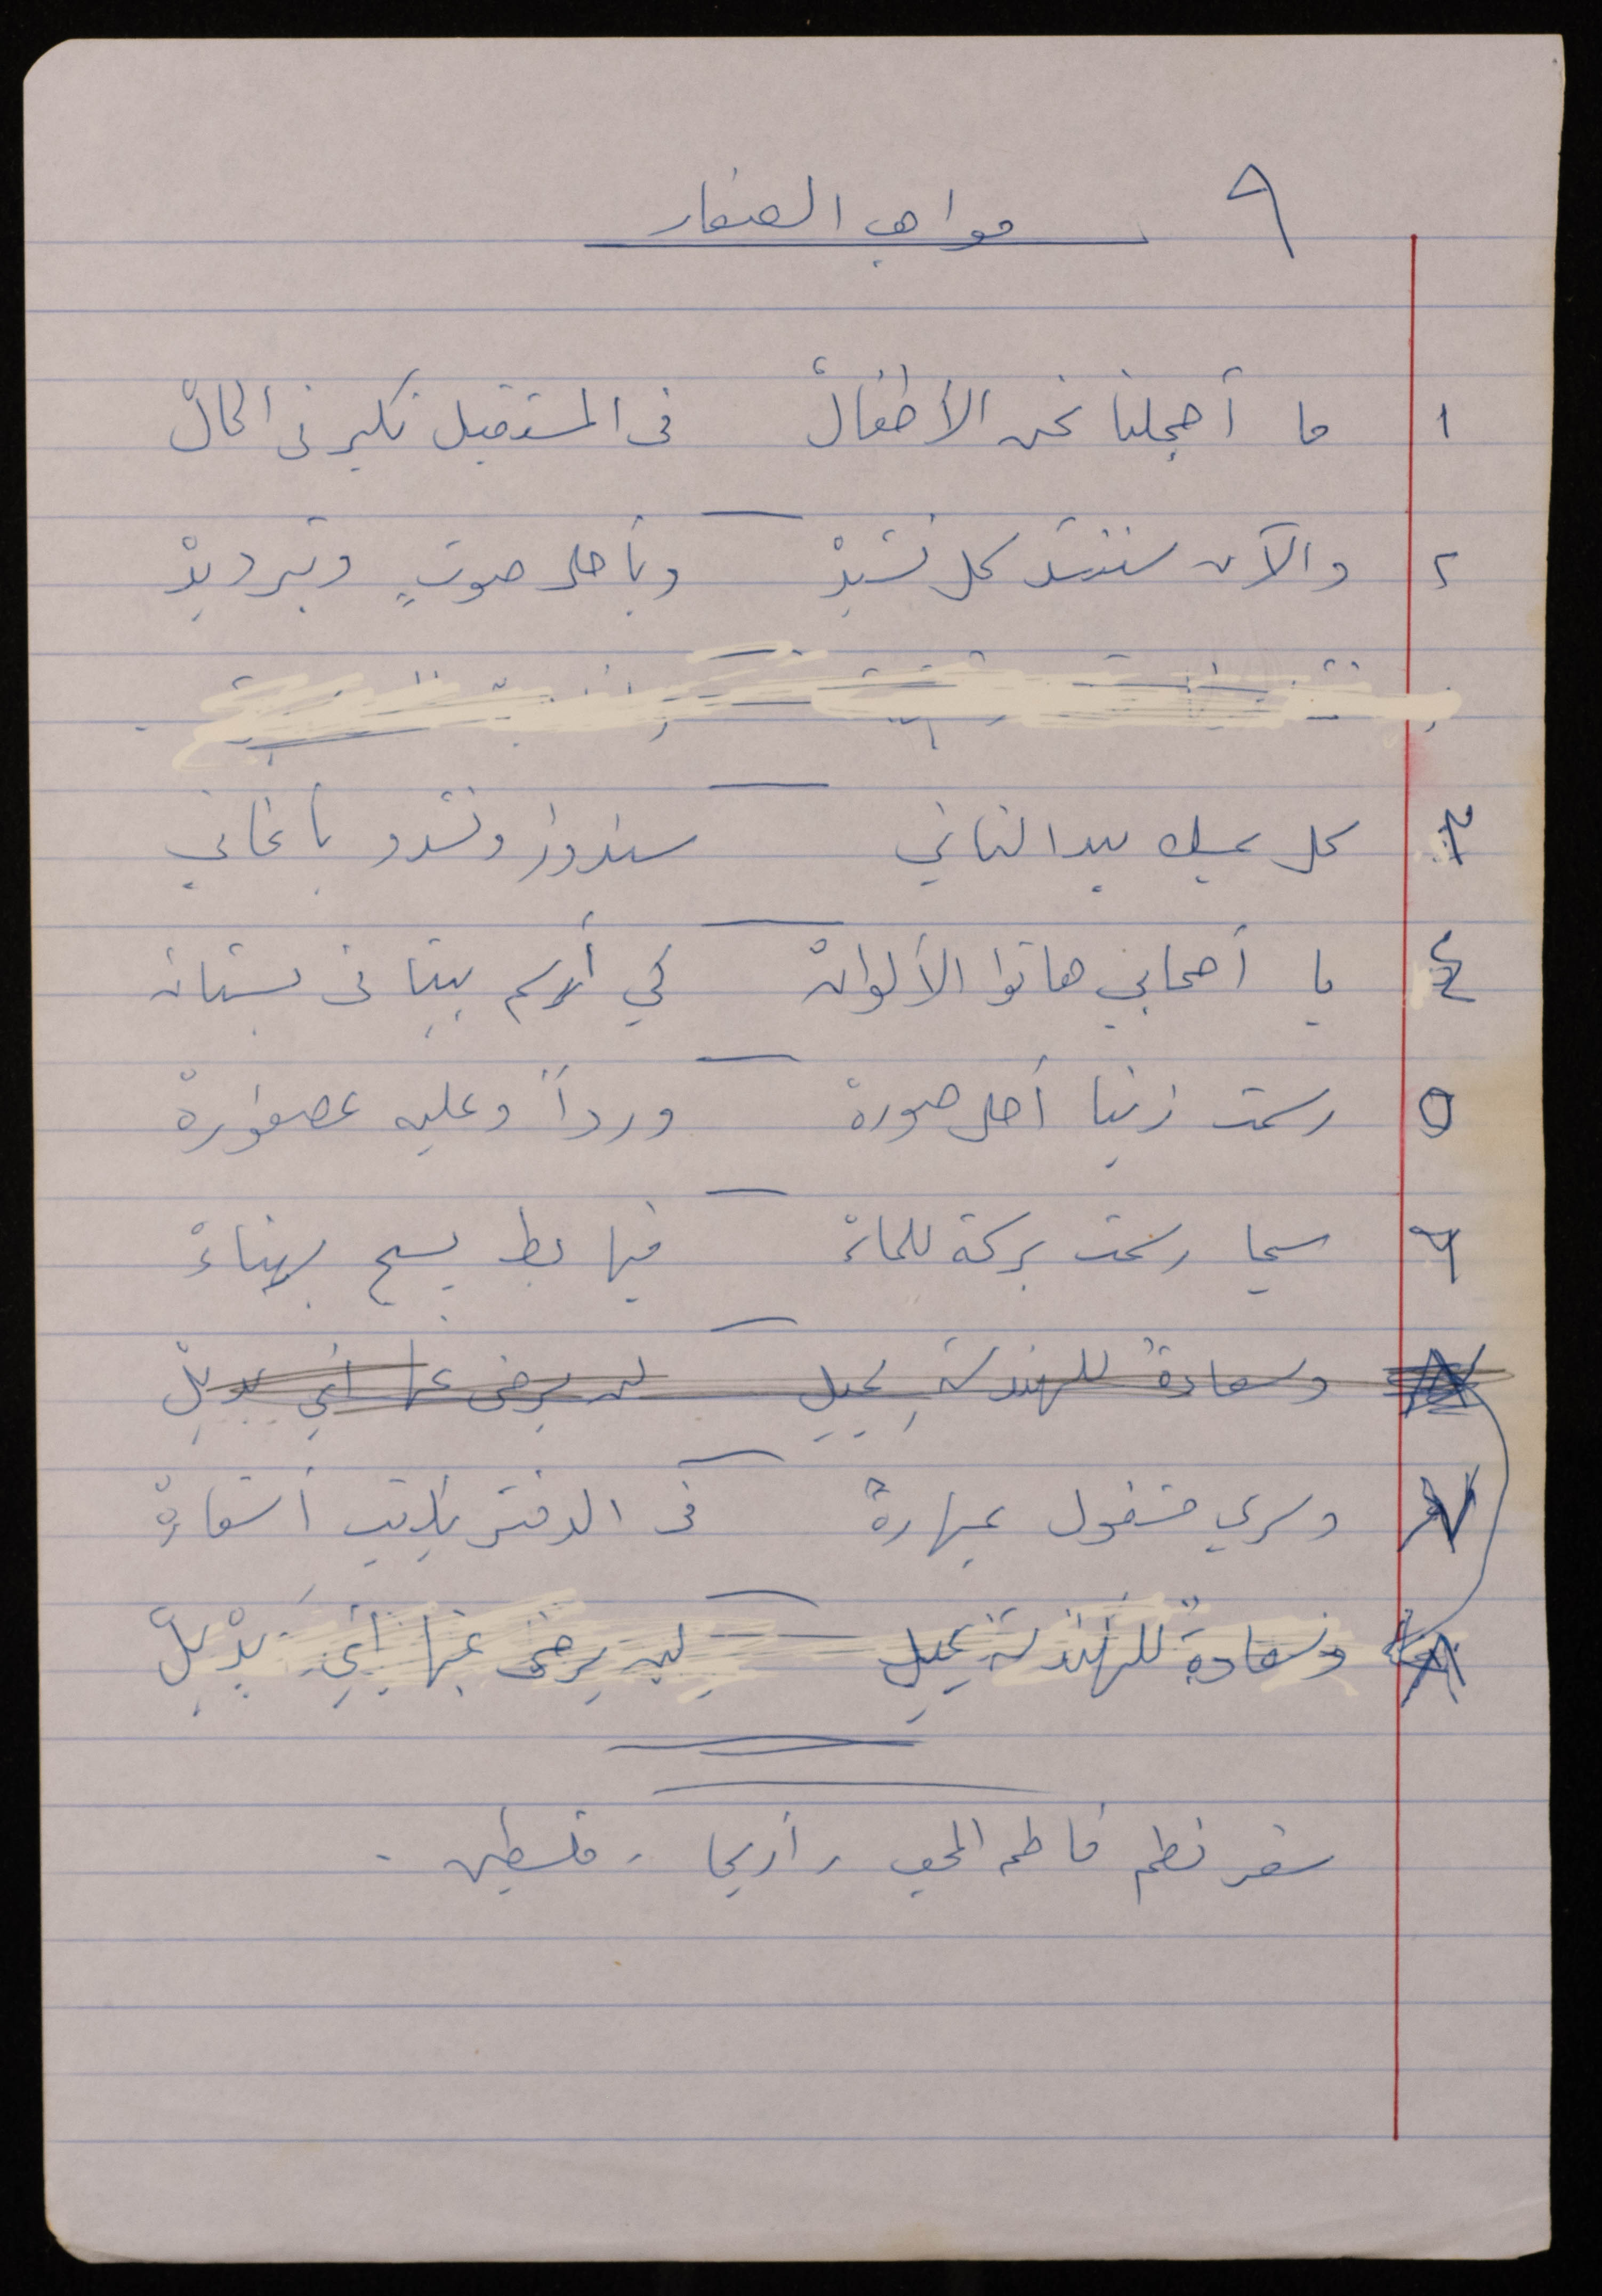 ٩ مواهب الصغار
١ ما أجملنا نحن الأطفالْ في المستقبل نكبر في الحالْ
٢ والآن سننشد كل نشيدْ وبأحلى صوتٍ وترديدْ
٣ كل يمسك بيد الثاني سندور ونشدو بأغاني
٤ يا أصحابي هاتوا الألوانْ كي أرسم بيتا في بستان
٥ رسمت زينا أحلى صورة ورداً وعليه عصفورةْ
٦ سجا رسمت بركة للماءْ فيها بط يسبح بهناءْ
٨ وسعادةُ للهندسةِ تميل لن يرضى عنها أي بديلْ
٧ وسري مشغول بمهارةْ في الدفتر يكتب أشعارهْ
٨ وسعادةٌ للهندسة تميل لن يرضى عنها أيَ بديلْ
شعر نظم فاطمه المحب، أريحا - فلسطين.